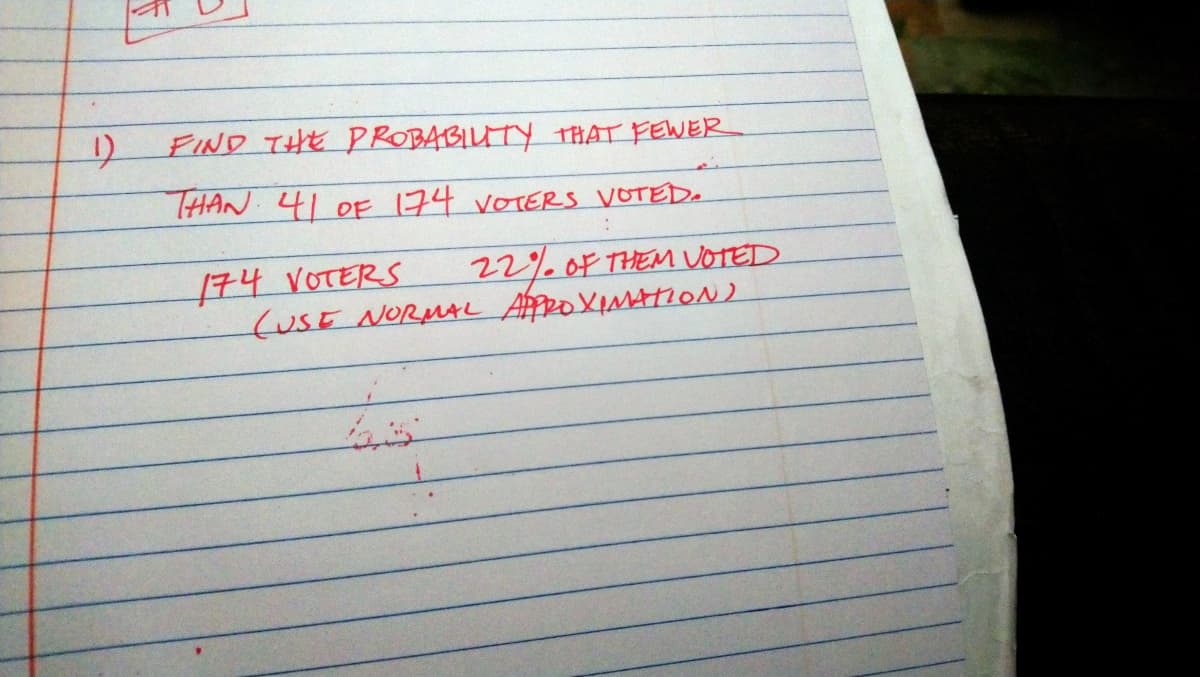 1) FIND THE PROBABILITY THAT FEWER
THAN 41 OF 174 VOTERS VOTED.
174 VOTERS 22% OF THEM VOTED
(USE NORMAL APPROXIMATION)